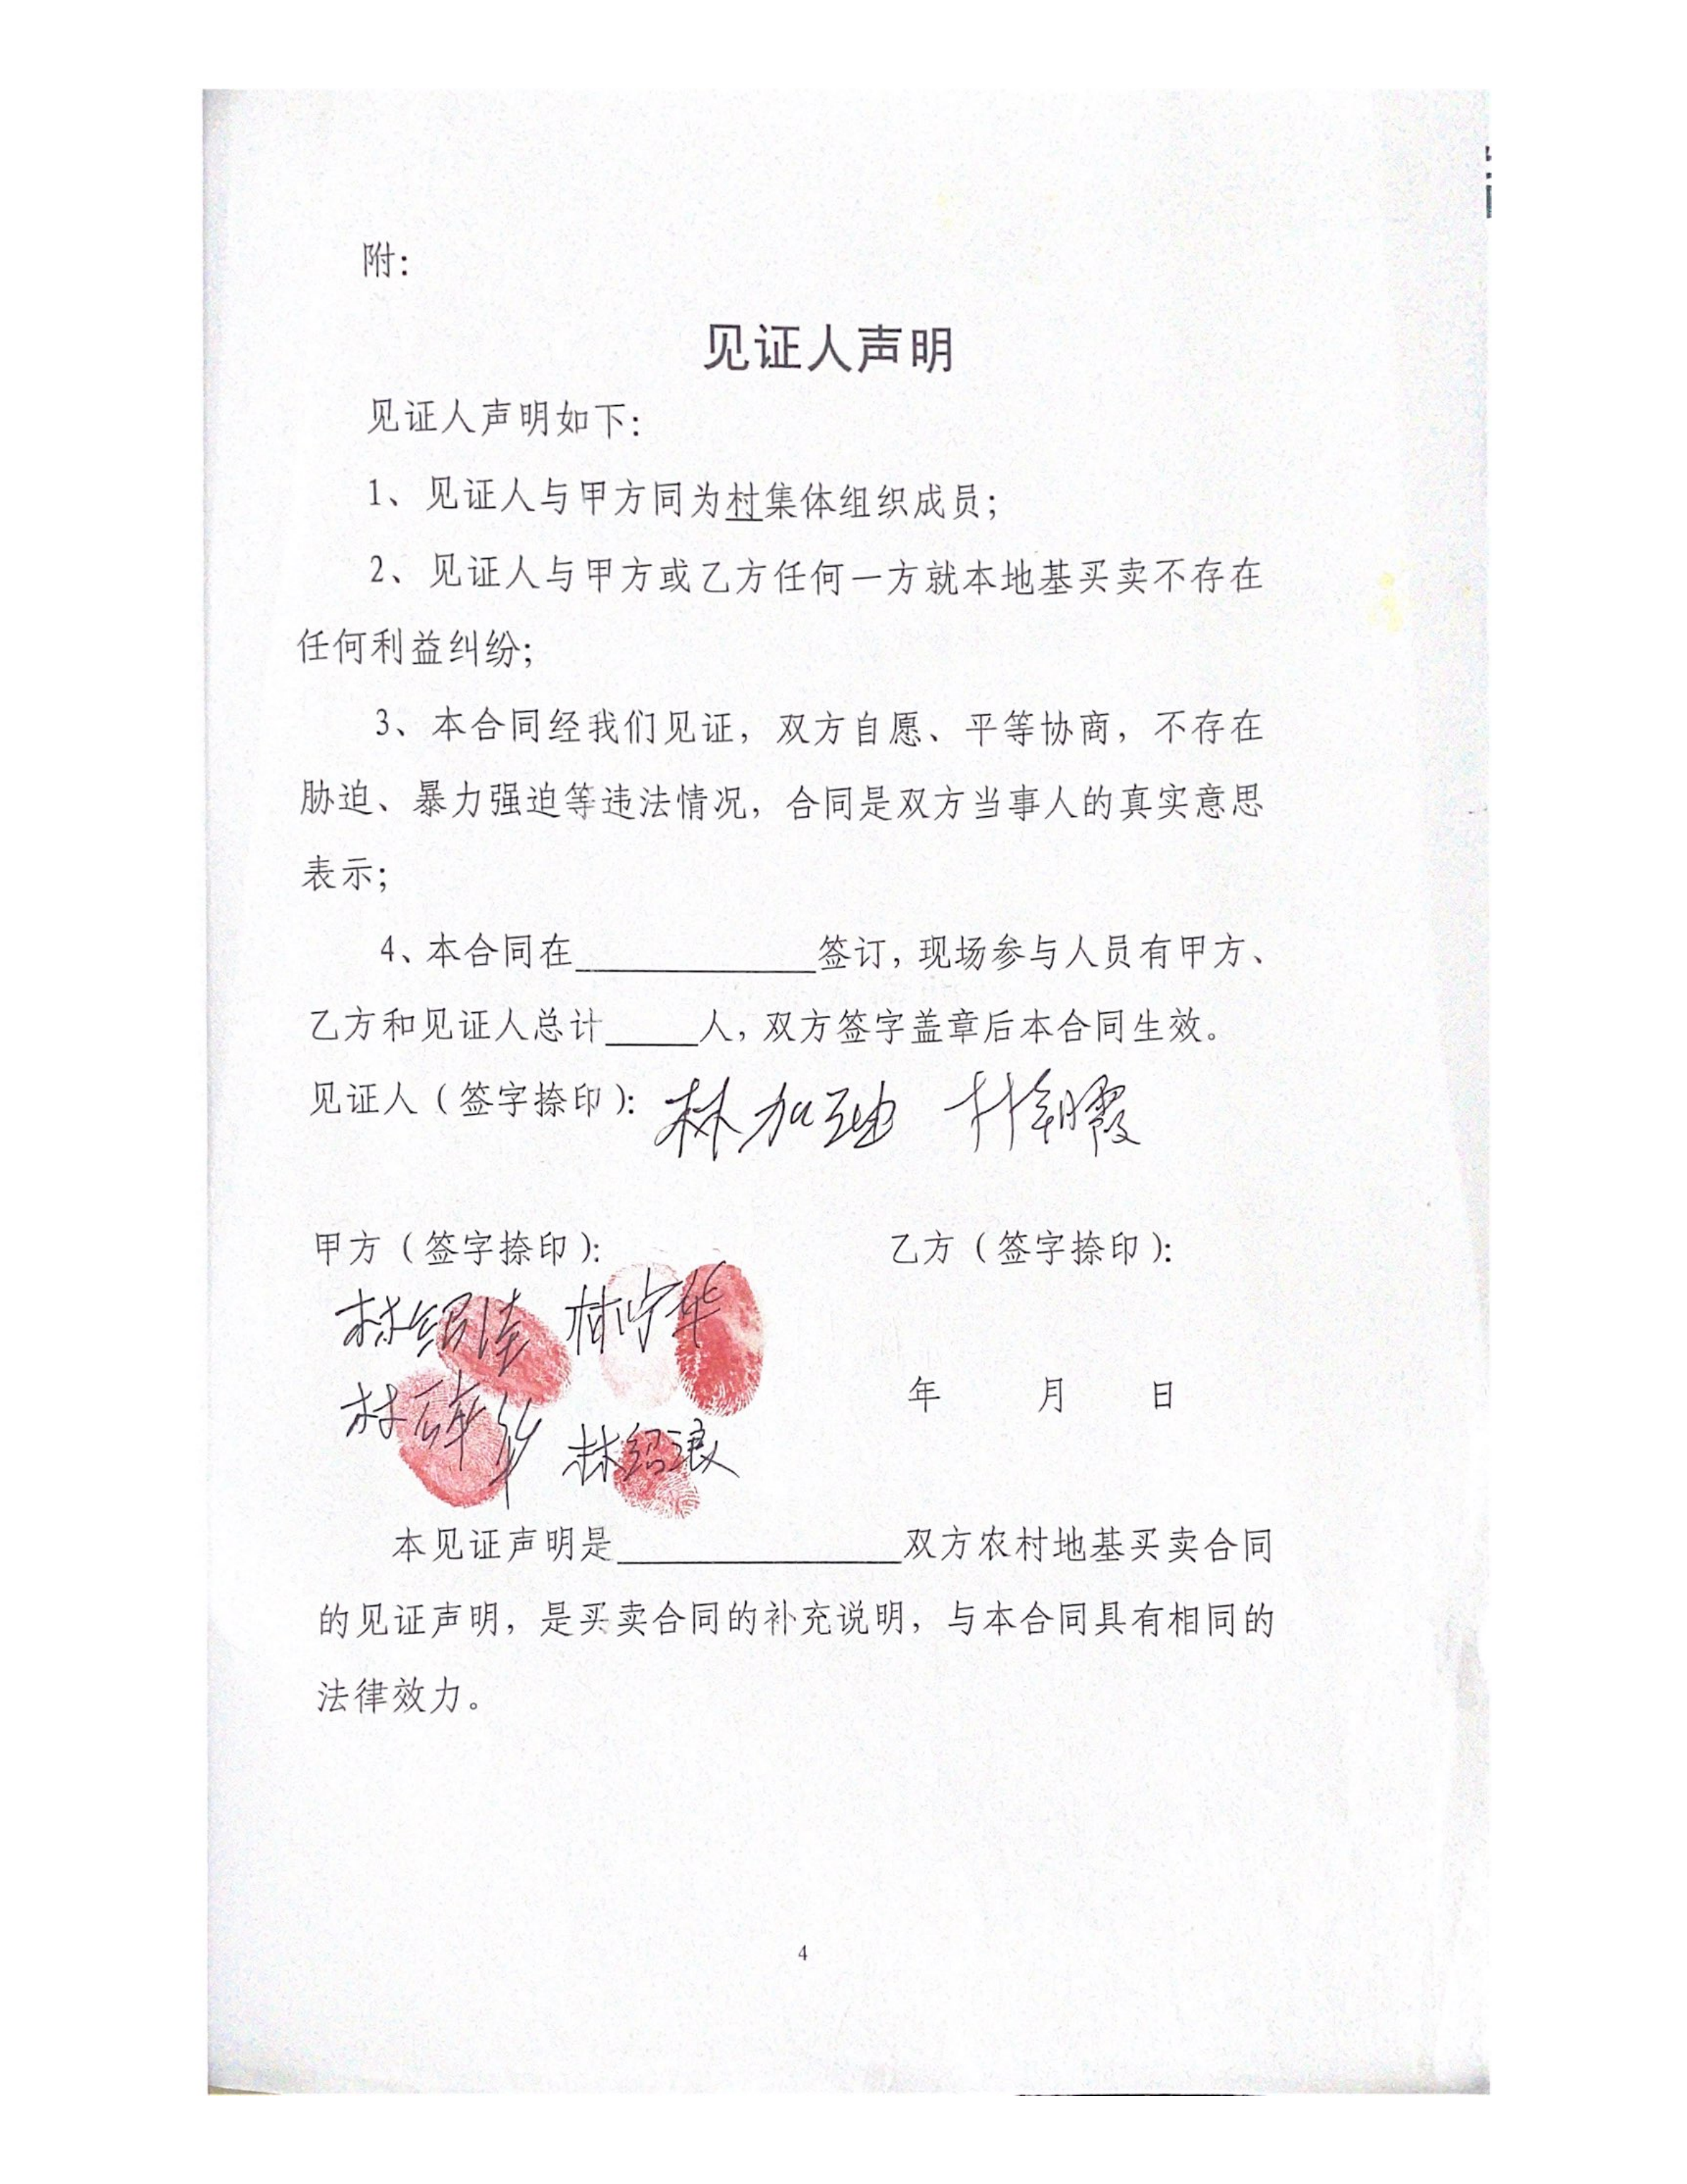 附：
见证人声明
见证人声明如下：
1、见证人与甲方同为村集体组织成员；
2、见证人与甲方或乙方任何一方就本地基买卖不存在
任何利益纠纷；
3、本合同经我们见证，双方自愿、平等协商，不存在
胁迫、暴力强迫等违法情况，合同是双方当事人的真实意思
表示；
4、本合同在____________签订，现场参与人员有甲方、
乙方和见证人总计_____人，双方签字盖章后本合同生效。
见证人（签字捺印）：林加 林朝霞
甲方（签字捺印）： 乙方（签字捺印）：
林绍 林 华
年 月 日
林 林绍浪
本见证声明是______________双方农村地基买卖合同
的见证声明，是买卖合同的补充说明，与本合同具有相同的
法律效力。
4